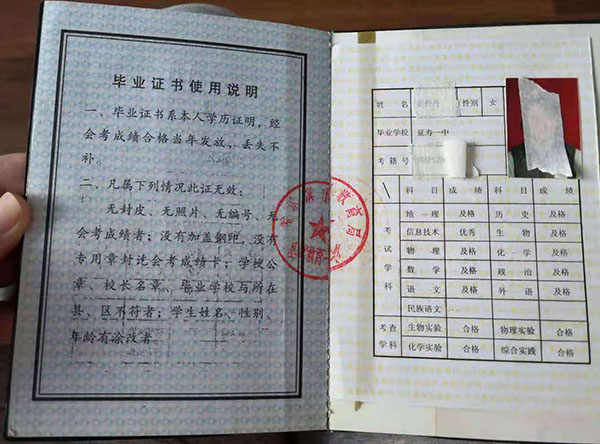 毕业证书使用说明
一、毕业证书系本人学历证明，经
会考成绩合格当年发放，丢失不
补。
二、凡属下列情况此证无效：
无封皮、无照片、无编号、无
会考成绩者；没有加盖钢印，没有
专用章封讫会考成绩卡；学校公
章、校长名章、毕业学校与所在
县、区不符者；学生姓名、性别、
年龄有涂改者。
教育局
姓 名 性别 女
毕业学校 延寿一中
考籍号
科 目 成 绩 科 目 成 绩
考试学科
地 理 及格 历 史 及格
信息技术 优秀 生 物 及格
物 理 及格 化 学 及格
数 学 及格 政 治 及格
语 文 及格 外 语 及格
民族语文
考查学科
生物实验 合格 物理实验 合格
化学实验 合格 综合实践 合格